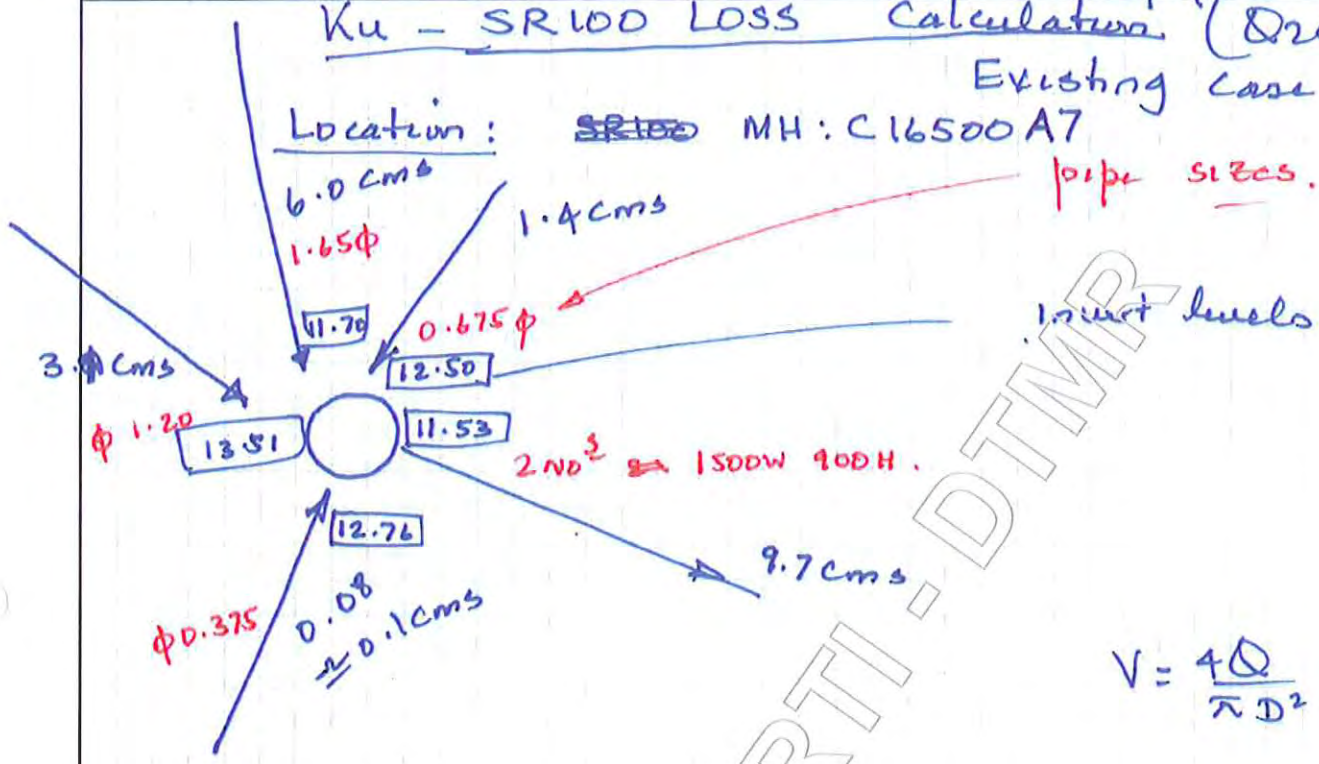 Ku - SR100 LOSS Calculation (Q20
Existing Case
Location: SR100 MH: C16500A7
6.0 cms
1.65φ
1.4 cms
pipe sizes.
11.70
0.675φ
Invert levels
12.50
3. cms
φ 1.20
13.51
11.53
2 NO^s 1500W 900H.
12.76
9.7 cms
φ0.375
0.08
≈ 0.1 cms
V = 4Q
π D²
RTI - DTMR